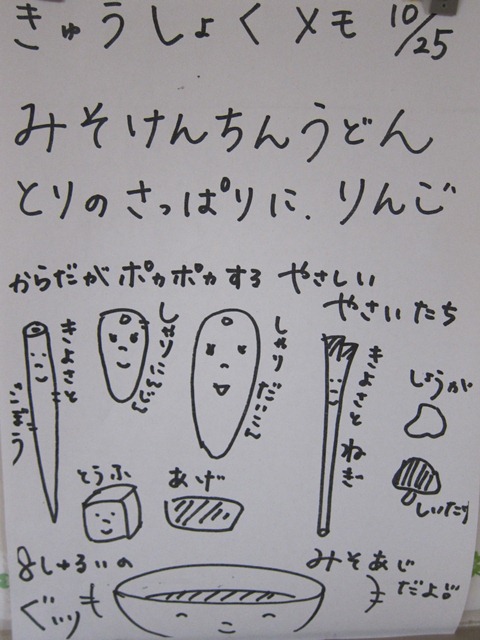 きゅうしょくメモ 10/25
みそけんちんうどん
とりのさっぱりに. りんご
からだがポカポカする やさしい
やさいたち
きよさと
ごぼう
しゃりにんじん
しゃりだいこん
きよさと ねぎ
しょうが
しいたけ
とうふ
あげ
8しゅるいの
ぐぃッ
みそあじ
だよ!!